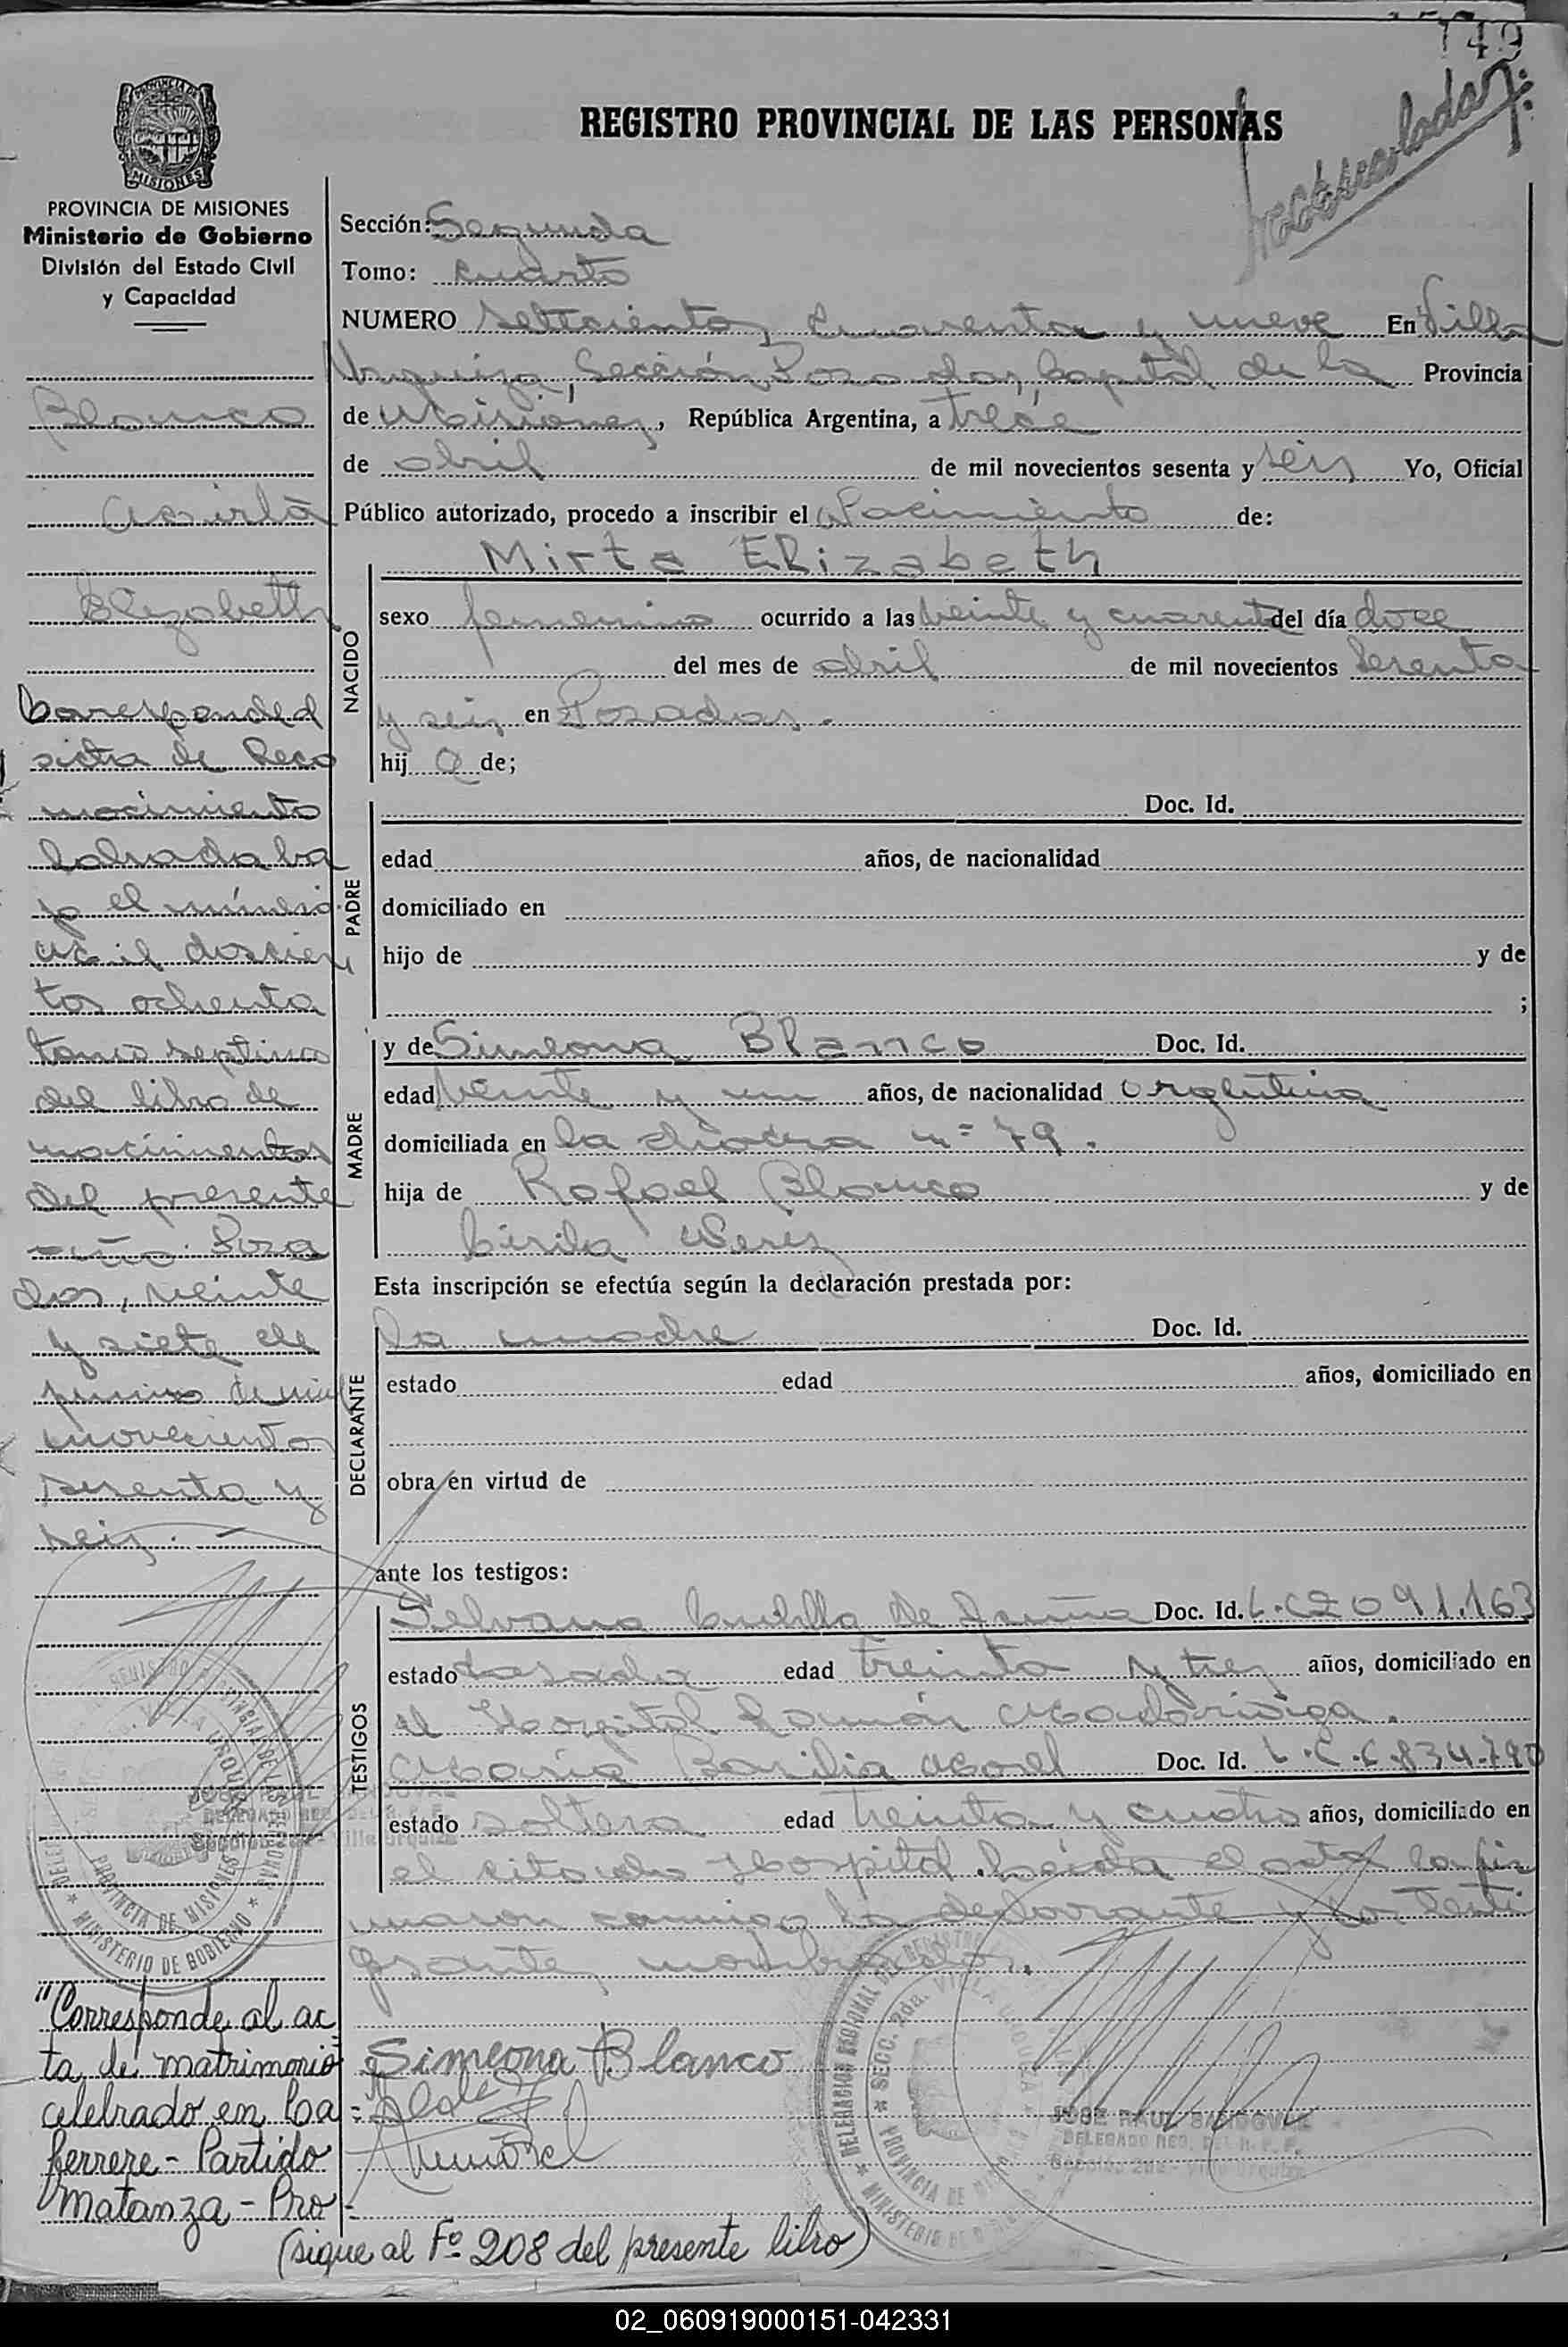 749
REGISTRO PROVINCIAL DE LAS PERSONAS
PROVINCIA DE MISIONES
Ministerio de Gobierno
División del Estado Civil
y Capacidad
Sección: Segunda
Tomo: Cuarto
NUMERO Setecientos cuarenta y nueve En Villa
Urquiza, Sección Posadas, Capital de la Provincia
de Misiones, República Argentina, a trece
de abril de mil novecientos sesenta y seis Yo, Oficial
Público autorizado, procedo a inscribir el Nacimiento de:
Blanco
Mirta
Elizabeth
Corresponde al
acta de Reco
nocimiento
labrada ba
jo el número
Mil doscien
tos ochenta
tomo septimo
del libro de
nacimientos
del presente
año. Posa
das, veinte
y siete de
junio de mil
novecientos
sesenta y
seis.-
NACIDO
Mirta Elizabeth
sexo femenino ocurrido a las veinte y cuarenta del día doce
del mes de abril de mil novecientos sesenta
y seis en Posadas.
hij a de;
PADRE
Doc. Id.
edad años, de nacionalidad
domiciliado en
hijo de y de
;
MADRE
y de Simeona Blanco Doc. Id.
edad veinte y un años, de nacionalidad argentina
domiciliada en la chacra nº 79.
hija de Rafael Blanco y de
Cirila
Esta inscripción se efectúa según la declaración prestada por:
DECLARANTE
la madre Doc. Id.
estado edad años, domiciliado en
obra en virtud de
ante los testigos:
TESTIGOS
Selvana de Doc. Id. L.C 2091.163
estado casada edad treinta y tres años, domiciliado en
el Hospital Ramón Madariaga.
María Basilia Morel Doc. Id. L.C.6.834.790
estado soltera edad treinta y cuatro años, domiciliado en
el citado Hospital. Leída el acta la fir
maron conmigo la declarante y los testi
nombrados.
Simeona Blanco
Morel
DELEGACION REGIONAL DEL REGISTRO PROVINCIAL DE LAS PERSONAS
SECC. 2da. VILLA URQUIZA
PROVINCIA DE MISIONES
MINISTERIO DE GOBIERNO
JOSE RAUL SANDOVAL
DELEGADO REG. DEL R. P. P.
Sección 2da - Villa Urquiza
"Corresponde al ac
ta de matrimonio
celebrado en La
ferrere - Partido
Matanza - Pro
(sigue al Fº 208 del presente libro)
02_060919000151-042331